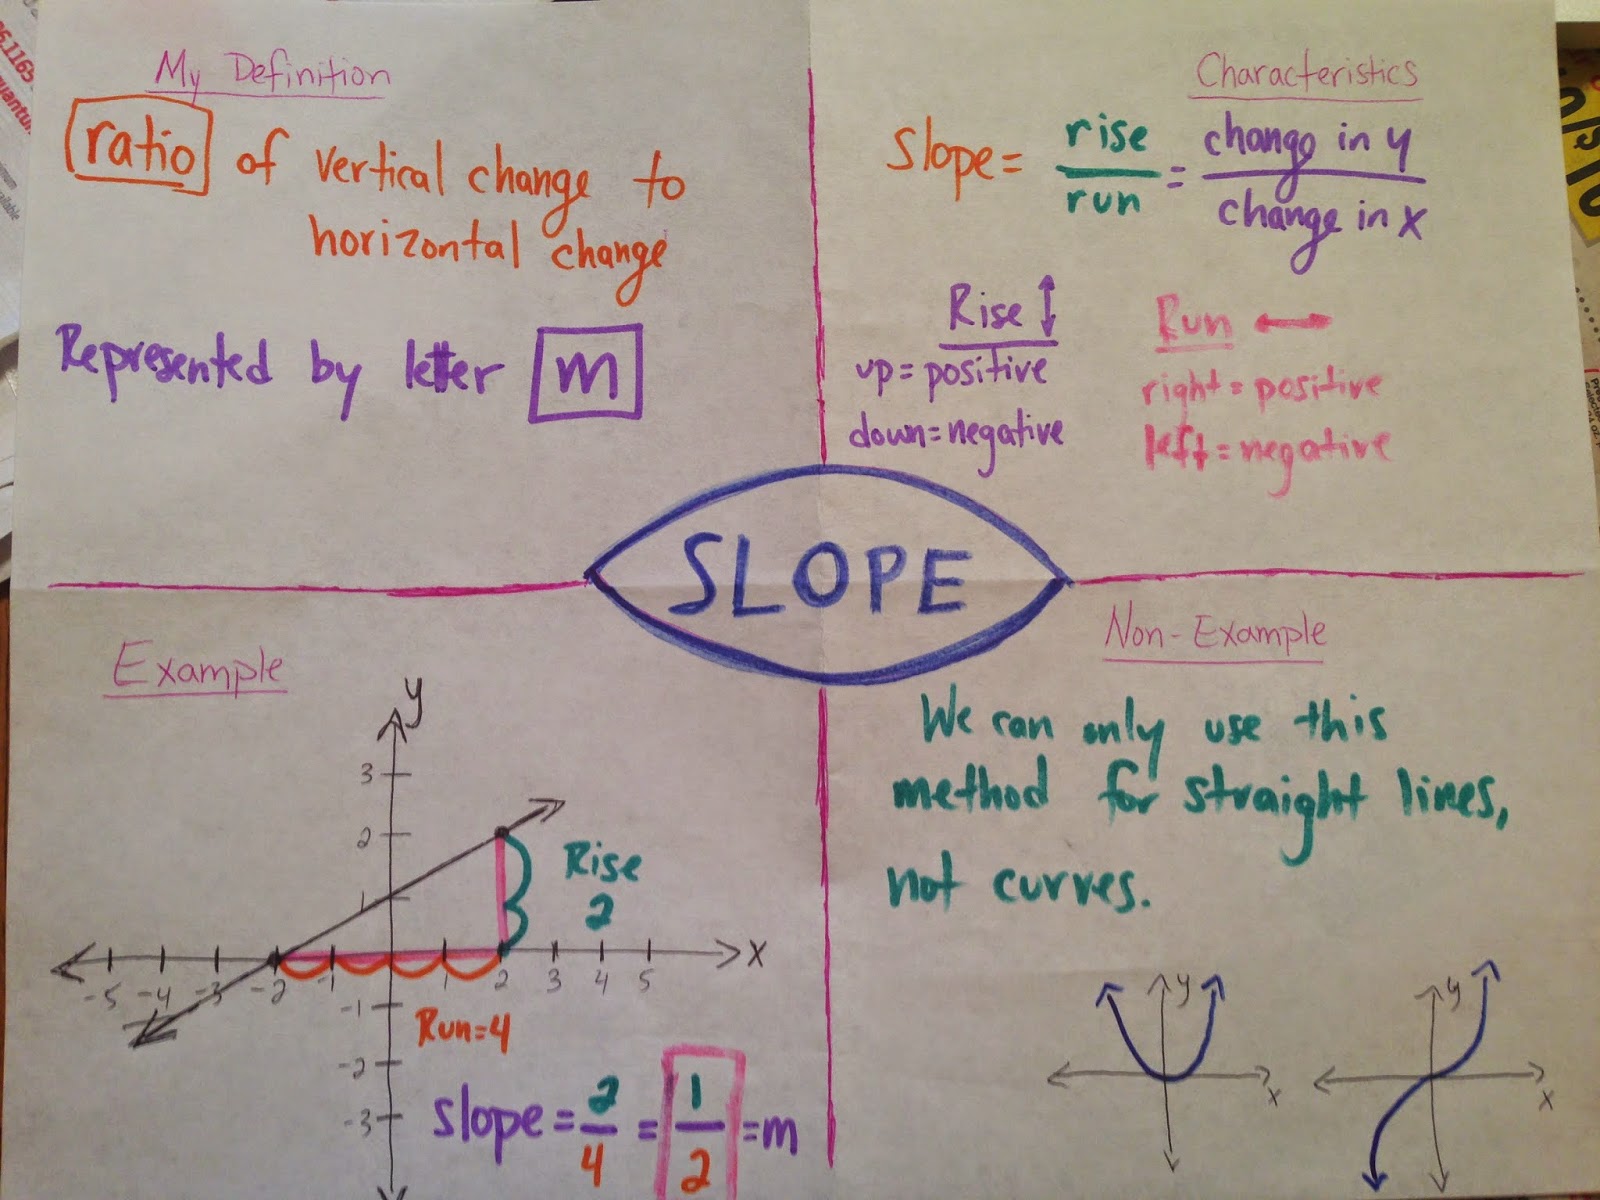 My Definition
ratio of vertical change to
horizontal change
Represented by letter m
Characteristics
Slope = rise/run = change in y/change in x
Rise ↕
up = positive
down = negative
Run ↔
right = positive
left = negative
SLOPE
Example
y
3
2
1
Rise
2
x
-5 -4 -3 -2 -1 1 2 3 4 5
-1
Run=4
-2
-3
Slope = 2/4 = 1/2 = m
Non-Example
We can only use this
method for straight lines,
not curves.
y
x
y
x